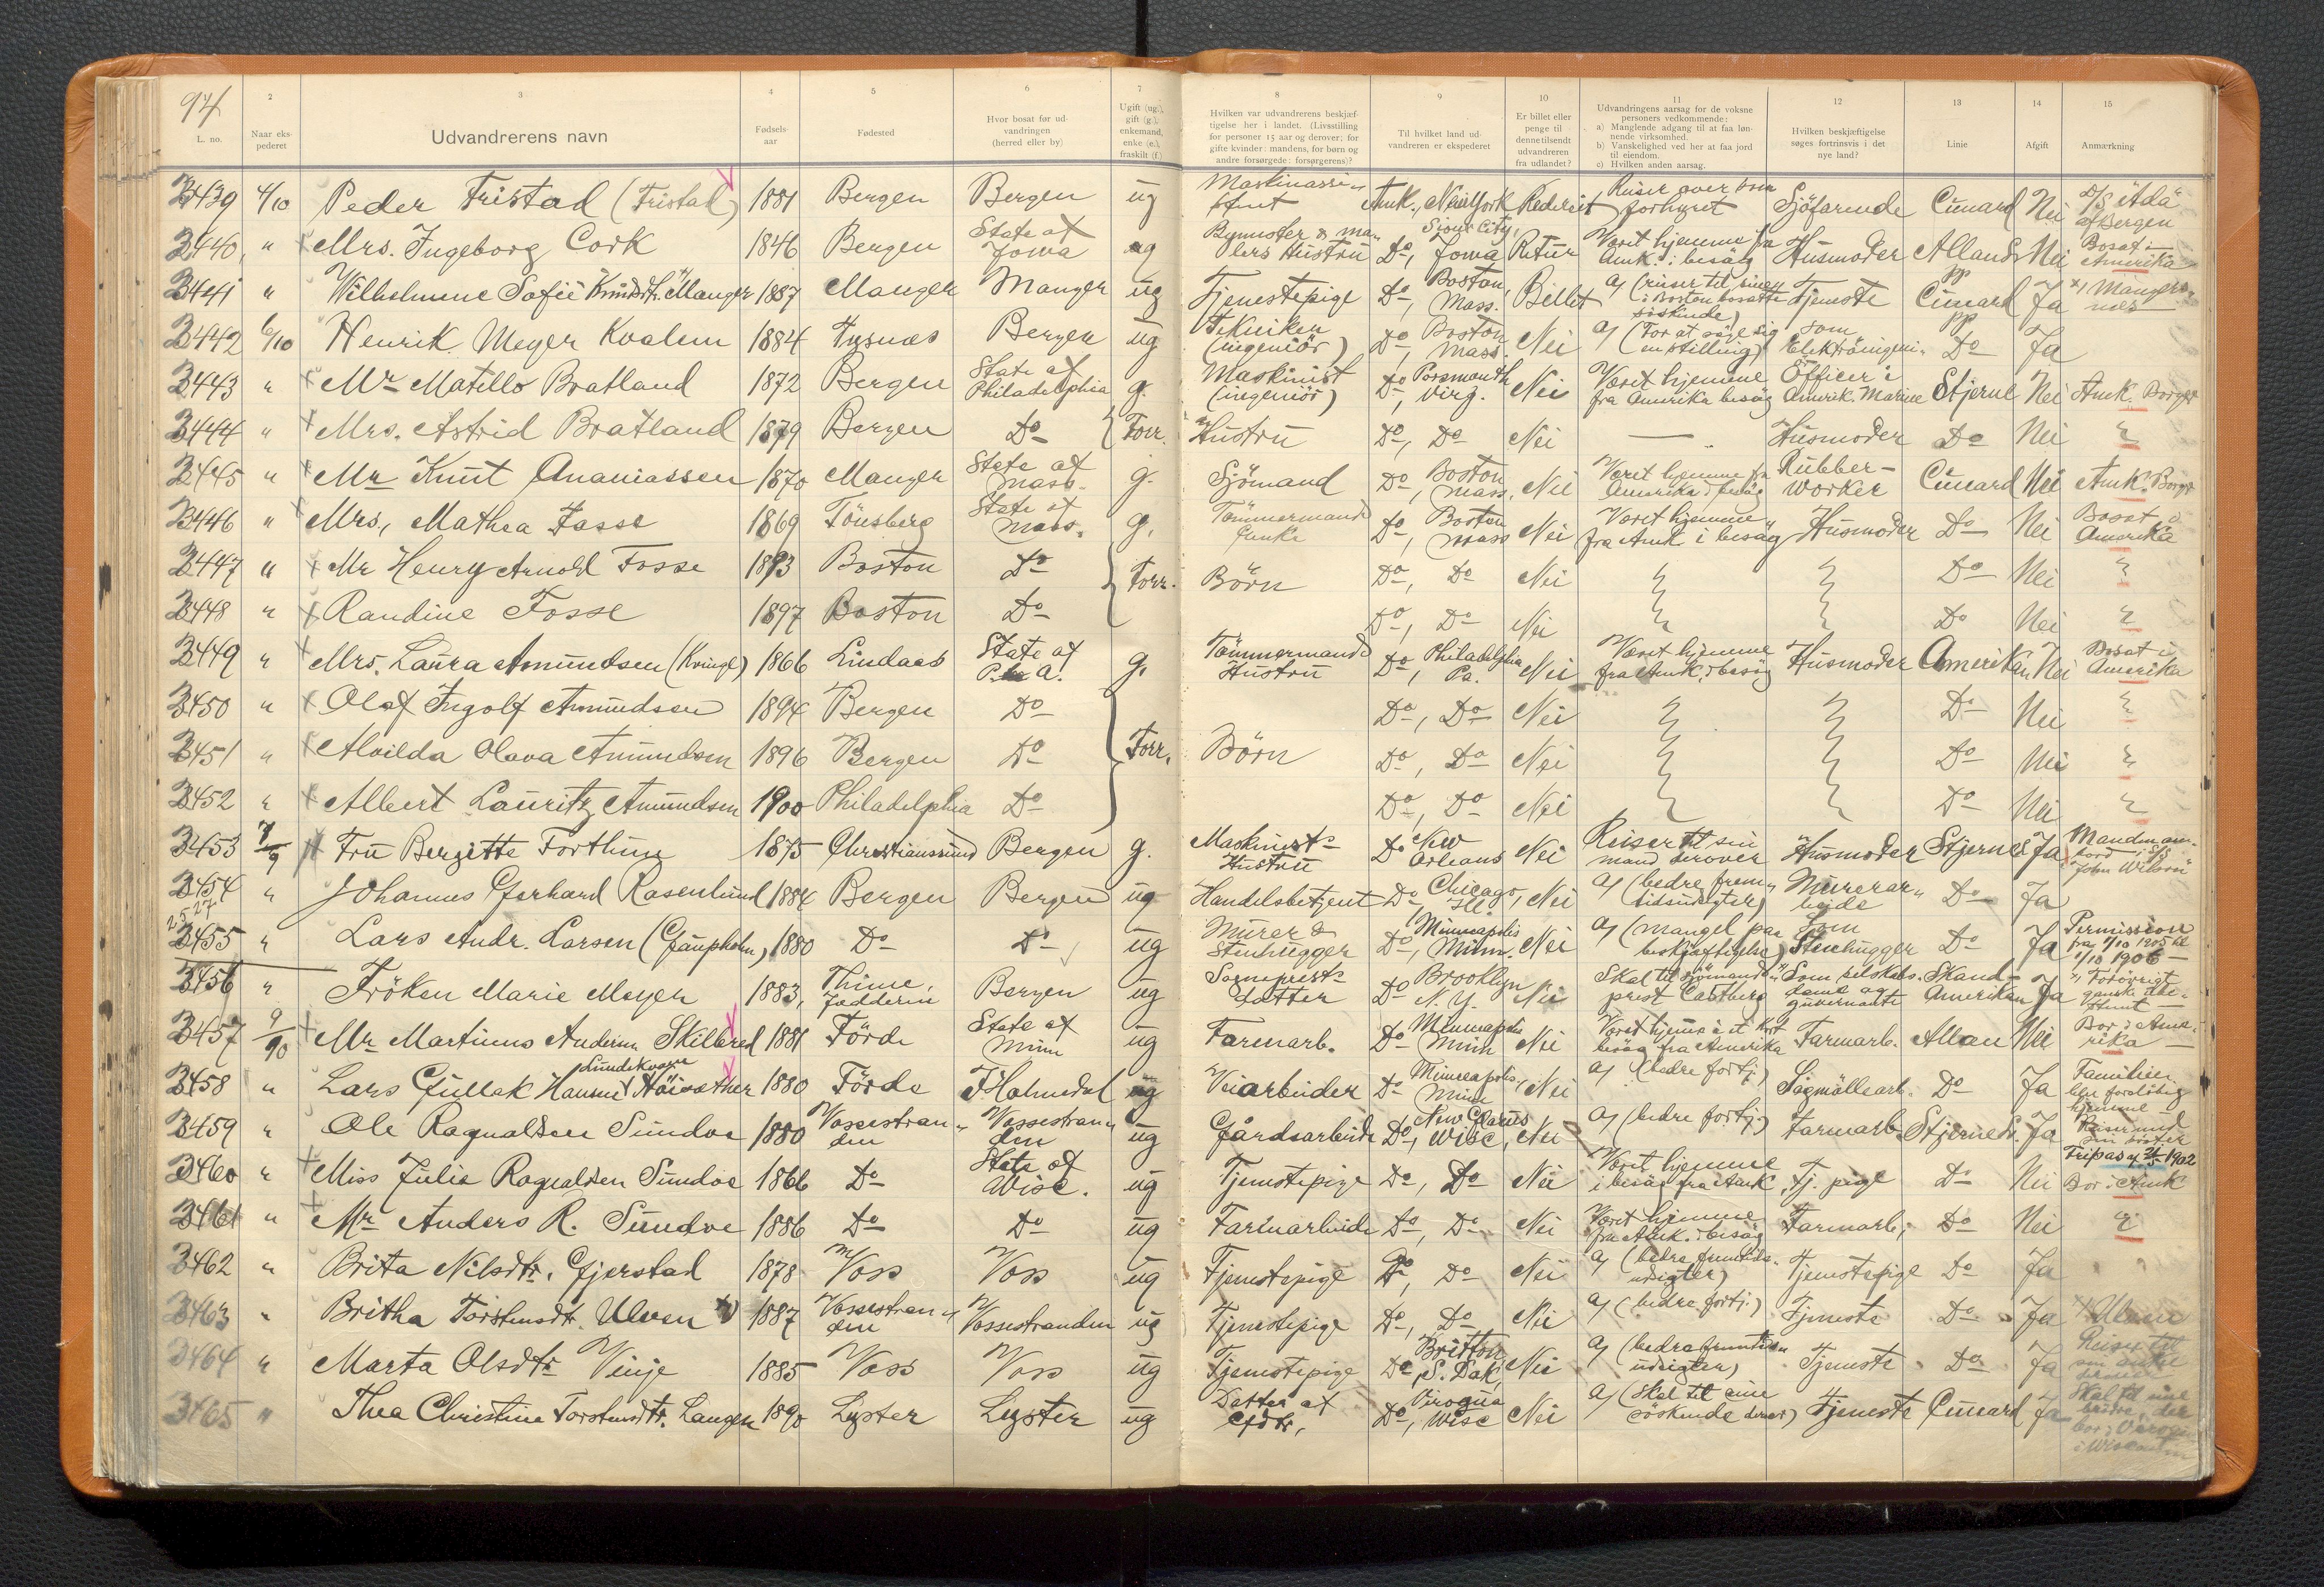 94
2 3 4 5 6 7 8 9 10 11 12 13 14 15
L. no.
Naar eks-
pederet
Udvandrerens navn
Fødsels-
aar
Fødested
Hvor bosat før ud-
vandringen
(herred eller by)
Ugift (ug.),
gift (g.),
enkemand,
enke (e.),
fraskilt (f.)
Hvilken var udvandrerens beskjæf-
tigelse her i landet. (Livsstilling
for personer 15 aar og derover; for
gifte kvinder: mandens, for børn og
andre forsørgede: forsørgerens)?
Til hvilket land ud-
vandreren er ekspederet
Er billet eller
penge til
denne tilsendt
udvandreren
fra udlandet?
Udvandringens aarsag for de voksne
personers vedkommende:
a) Manglende adgang til at faa løn-
nende virksomhed.
b) Vanskelighed ved her at faa jord
til eiendom.
c) Hvilken anden aarsag.
Hvilken beskjæftigelse
søges fortrinsvis i det
nye land?
Linie
Afgift
Anmærkning
3439 4/10 Peder Fristad (Fristad) 1881 Bergen Bergen ug Maskinassi- stent Amk., NewYork Rederiet Reiser over som forhyret Sjöfarende Cunard Nei D/S Ätdä af Bergen
3440 " Mrs. Ingeborg Cork 1846 Bergen State of Jowa ug Hustru Do, Sioux City, Jowa Retur Været hjemme fra Amk. i besøg Husmoder Allans Nei Bosat i Amerika
3441 " Wilhelmine Sofie Knudsdtr. Manger 1887 Manger Manger ug Tjenestepige Do, Boston, Mass. Billet a) (reiser til sine i Boston bosatte söskende) Tjeneste pp Cunard Ja
3442 6/10 Henrik Meyer Kvalem 1884 Tysnæs Bergen ug Tekniker (ingeniör) Do, Boston Mass. Nei a) (For at söge sig en stilling) som Elektröingeni- pp Do Ja
3443 " Mr Matillo Bratland 1872 Bergen State of Philadelphia g. Maskinist (ingeniör) Do, Porsmouth Virg. Nei Været hjemme fra Amerika besøg Officer i Amerik. Marine Stjerne Nei Amk. Borger
3444 " Mrs. Astrid Bratland 1879 Bergen Do Forr. Hustru Do, Do Nei — Husmoder Do Nei "
3445 " Mr Knut Ananiassen 1870 Manger State of Mass. g. Sjömand Do, Boston Mass. Nei Været hjemme fra Amerika i besøg Rubber- worker Cunard Nei Amk. Borger
3446 " Mrs, Mathea Fosse 1869 Tönsberg State of Mass. g. Tömmermands Enke Do, Boston Mass Nei Været hjemme fra Amk i besøg Husmoder Do Nei Bosat i Amerika
3447 " Mr Henry Arnold Fosse 1893 Boston Do Forr. Börn Do, Do Nei " " Do Nei "
3448 " Randine Fosse 1897 Boston Do Do, Do Nei " " Do Nei "
3449 " Mrs. Laura Amundsen (Kvinge) 1866 Lindaas State of Pa. g. Tömmermands Hustru Do, Philadelphia Pa. Nei Været hjemme fra Amk. i besøg Husmoder Amerikan Nei Bosat i Amerika
3450 " Olaf Ingolf Amundsen 1894 Bergen Do Do, Do Nei " " Do Nei "
3451 " Alvilda Olava Amundsen 1896 Bergen Do Forr. Börn Do, Do Nei " " Do Nei "
3452 " Albert Lauritz Amundsen 1900 Philadelphia Do Do, Do Nei " " Do Nei "
3453 7/9 Fru Bergitte Forthun 1875 Christianssund Bergen g. Maskinist- Hustru Do New Orleans Nei Reiser til sin mand derover Husmoder Stjerne Ja Manden om- bord i S/S "John Wilson"
3454 " Johannes Gerhard Rasenlund 1884 Bergen Bergen ug Handelsbetjent Do Chicago, Ill. Nei a) (bedre frem- tidsudsigter) Murerar- beide Do Ja
2527
3455 " Lars Andr. Larsen (Gjæupholm) 1880 Do Do ug Murer & Stenhugger Do, Minneapolis Minn. Nei a) (mangel paa beskjæftigelse) Som Stenhugger Do Ja Permission fra 1/10 1905 til 1/10 1906
3456 " Fröken Marie Meyer 1883, Thime, Jædderen Bergen ug Sogneprest- datter Do Brooklyn N.Y. Nei Skal til sjömands- prest Castberg Som selskabs- dame og guvernante Skand- Amerikan Ja
3457 9/10 Mr Martinus Andersen Skilbred 1881 Förde State of Minn ug Farmarb. Do Minneapolis Minn Nei Været hjemme i et kort besøg fra Amerika Farmarb. Allan Nei Bor i Ame- rika
3458 " Lars Gullak Hansen Höisæther 1880 Förde Holmedal ug Veiarbeider Do Minneapolis Minn Nei a) (bedre fortj.) Sagmöllearb. Do Ja Familien blir forelöbig hjemme
3459 " Ole Ragnaldsen Sundve 1880 Vossestran- den Vossestran- den ug Gårdsarbeide Do, New Glarus Wisc. Nei a) (bedre fortj.) Farmarb. Stjernel. Ja Reiser med sin söster
3460 " Miss Julie Ragnaldsen Sundve 1866 Do State of Wisc. ug Tjenestepige Do, Do Nei Været hjemme i besøg fra Amk. Tj. pige Do Nei Fripas af 1902 Bor i Amk
3461 " Mr Anders R. Sundve 1886 Do Do ug Farmarbeide Do, Do Nei Været hjemme fra Amk. i besøg Farmarb. Do Nei "
3462 " Brita Nilsdtr. Gjerstad 1878 Voss Voss ug Tjenestepige Do, Do Nei a) (bedre fremtids- udsigter) Tjenestepige Do Ja
3463 " Britha Torstensdtr. Ulven 1887 Vossestran- den Vossestranden ug Tjenestepige Do, Do Nei a) (bedre fortj.) Tjeneste Do Ja Ulven
3464 " Marta Olsdtr Vinje 1885 Voss Voss ug Tjenestepige Do, Britton S. Dak. Nei a) (bedre fremtids- udsigter) Tjeneste Do Ja Reiser til sin onkel
3465 " Thea Christine Torstensdtr. Langen 1890 Lyster Lyster ug Datter af Do, Viroqua Wisc Nei a) (Skal til sine söskende derover) Tjeneste Cunard Ja Skal til sine brödre, der bor i Viroqua i Wisconsin